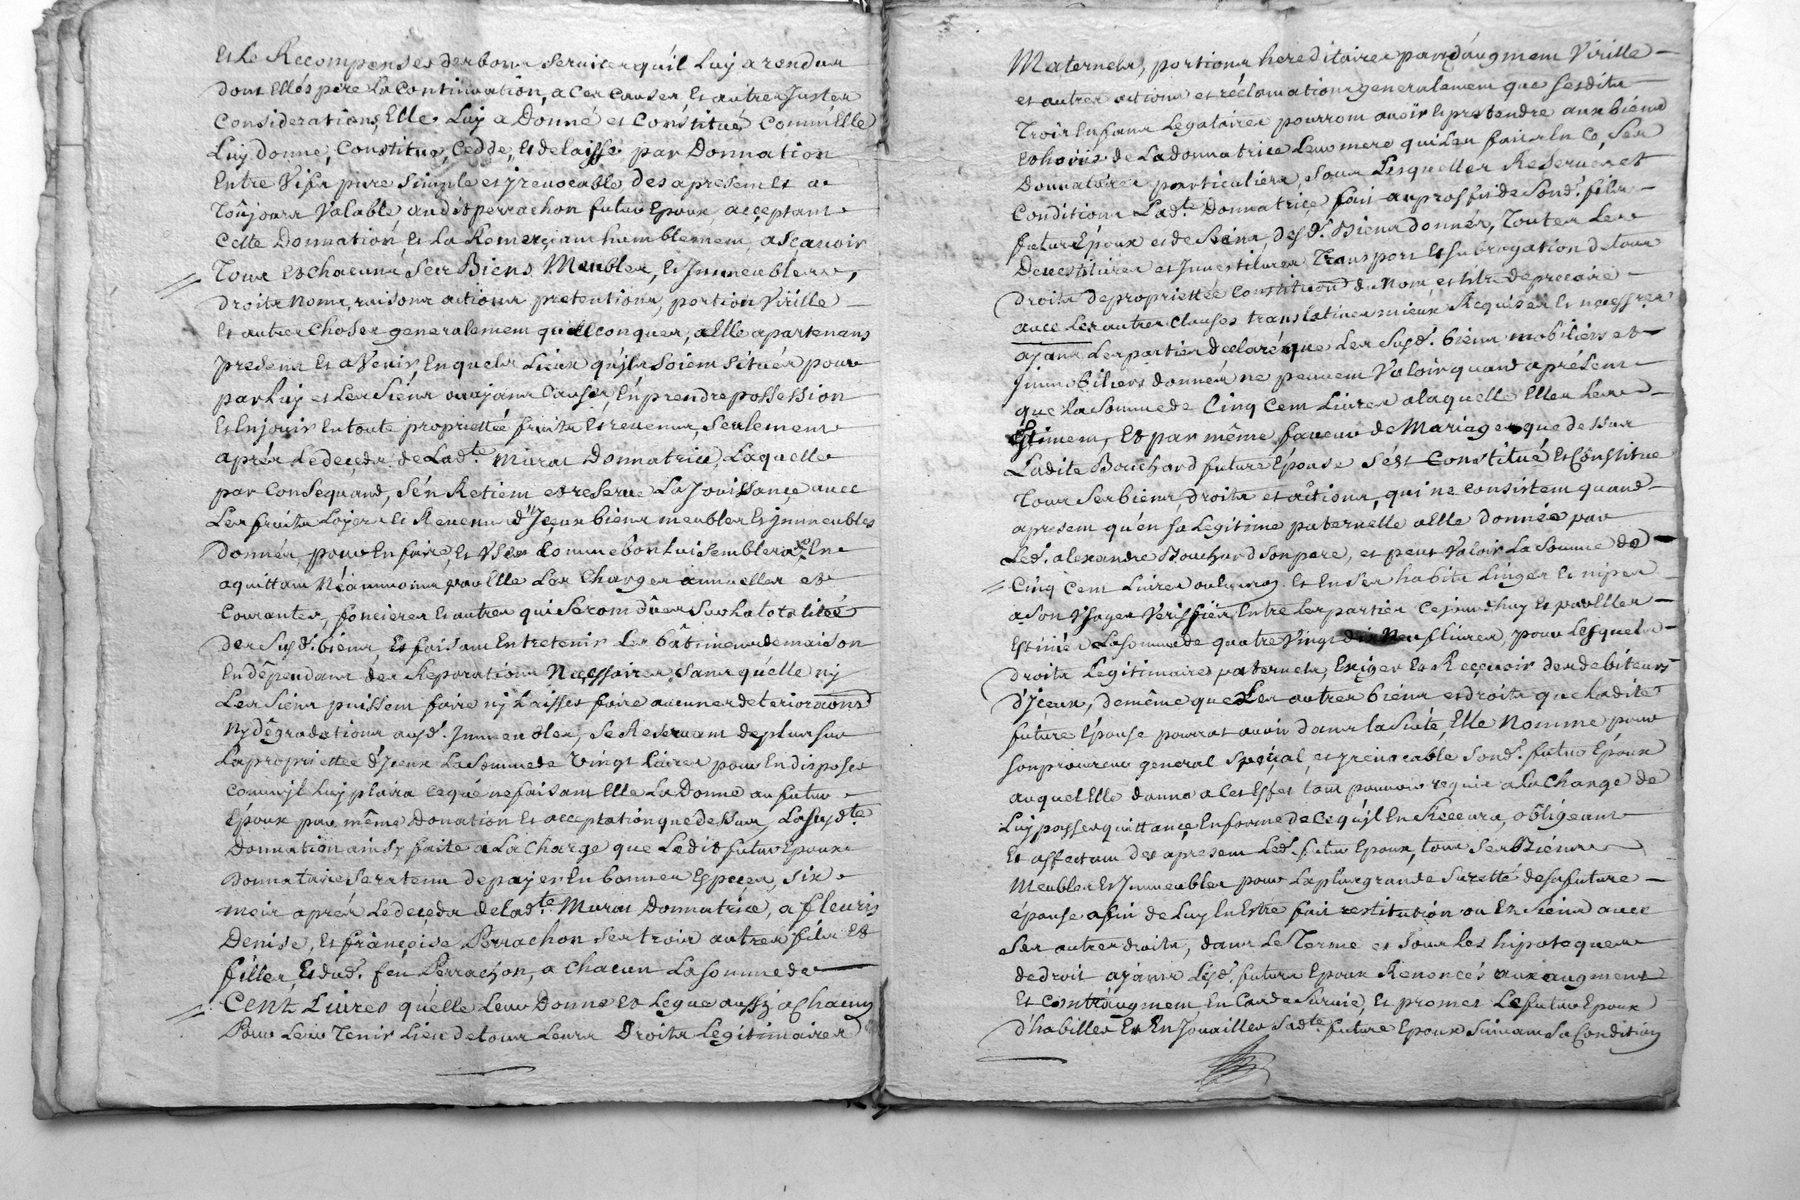 Et Le Recompenser des bons services qu'il Luy a rendus
dont Ellésperé La Continuation, a ces causes Et autres Justes
Considerations, Elle Luy a Donné et Constitué comm'Elle
Luy donne, Constitue, Cedde, Et delaisse par Donnation
Entre Vifs pure simple et jrevocable des apresent Et a
Toûjours Valable, audit perrachon futur Epoux acceptant
Cette Donnation, Et La Remerciant humblement, a Scavoir
Tous Et chacuns Ses Biens Meubles, Et Immeubles,
droits noms, raisons actions pretentions, portion Virille
Et autres choses generalement quelconques, a Elle apartenans
presens Et a Venir, En quels Lieux qu'jls soient situés pour
par Luy et Les Siens ou ayans Cause, En prendre possession
Et En jouir En toute proprietteé fruits Et revenus, Seulement
aprés Le deceds de Ladte. Murat Donnatrice, Laquelle
par Consequand, s'én Retient et reserve La Jouissance avec
Les fruits Loyers Et Revenus d'Jceux biens meubles Et jmmeubles
donnés, pour En faire, Et Vser comme bon Lui semblera, En
aquittant Néammoins par Elle Les Charges annuelles et
Courantes, foncieres Et autres qui Seront dûes Sur La totalitéé
des Susd. biens, Et faisant Entretenir Les bâtimens de maison
En dépendans des Reparations Necessaires, sans qu'elle nj
Les Siens puissent faire nj Laisser faire aucunes deteriorãons
nj dégradations ausd. jmmeubles, se Reservant de plus sur
La propriettée d'Jceux La Somme de Vingt Livres pour En disposer
comm'jl Luy plaira ce qué ne faisant Elle La Donne au futur
Epoux par même donation Et acceptation que dessus, La Susdte
Donnation ainsy faite a La Charge que Ledit futur Epoux
Donnataire sera tenu de payer En bonnes Especes, Six
mois aprés Le deceds de Ladte. Murat Donnatrice, a fleuris
Denise, Et françoise Perrachon ses trois autres fils Et
filles, Et dud. feu Perrachon, a chacun La somme de
Cent Livres qu'elle Leur Donne Et Legue aussj a Chacun
Pour Leur Tenir Lieu de tous Leurs Droits Legitimaires
Maternels, portions hereditaires part d'augment Virille
et autres actions et réclamations generalement que sesdits
Trois Enfans Legataires pourront avoir Et pretendre aux biens
Et hoirie de La donnatrice Leur mere qui Les fait En Ce, Ses
Donnatáires particuliers, Sous Lesquelles Reserves et
Conditions Ladte. Donnatrice fait au proffit de Sond. fils
futur Epoux et de Siens, desd. Biens donnés, Toutes Les
Devestitures et Jnvestitures Transport Et Subrogation de tous
droits de propriettée Constitution du Nom, et titre de precaire
avec Les autres Clauses translatives mieux Requises Et necessres
ayans Les parties declaré que Les Susd. biens mobiliers et
jmmobiliers donnés ne peuvent Valoir quand a présent
que La Somme de Cinq Cent Livres a laquelle Elles Les
Estiment, Et par même faveur de Mariage que dessus
Ladite Bouchard future Epouse s'est Constitué Et Constitue
Tous Ses biens, droits et actions, qui ne consistent quand
apresent qu'en Sa Legitime paternelle a Elle donnée par
Led. alexandre Bouchard Son pere, et peut Valoir La Somme de
Cinq Cent Livres Et En Ses habits Linges Et nipes
a son Vsage Veriffiés Entre Les parties Cejourd'huy Et par Elles
Estimés La Somme de quatre Vingt dix Neuf Livres, pour Lesquels
droits Legitimaires paternels, Exiger Et Reçevoir des debiteurs
d'Jceux, de même que Les autres biens et droits que Ladite
future Epouse pourrat avoir dans la Suite, Elle Nomme pour
son procureur general special, et jrevocable Sond. futur Epoux
auquel Elle donne a Cet Effet tout pouvoir requis a La Charge de
Luy passer quittance En forme de Ce qu'jl En Recevra, obligeant
Et affectant des apresent Led. futur Epoux, tous Ses Biens
Meubles Et Jmmeubles pour La plus grande Suretté de sa future
épouse afin de Luy En Estre fait restitution ou Es Siens avec
Ses autres droits, dans Le Terme et Sous Les hipoteques
de droit ayans Lesd. futurs Epoux Renoncés aux augment
Et Contr'augment En Cas de Survie, Et promet Le futur Epoux
d'habiller Et En Jouailler Sadte. future Epouse suivant Sa Condition